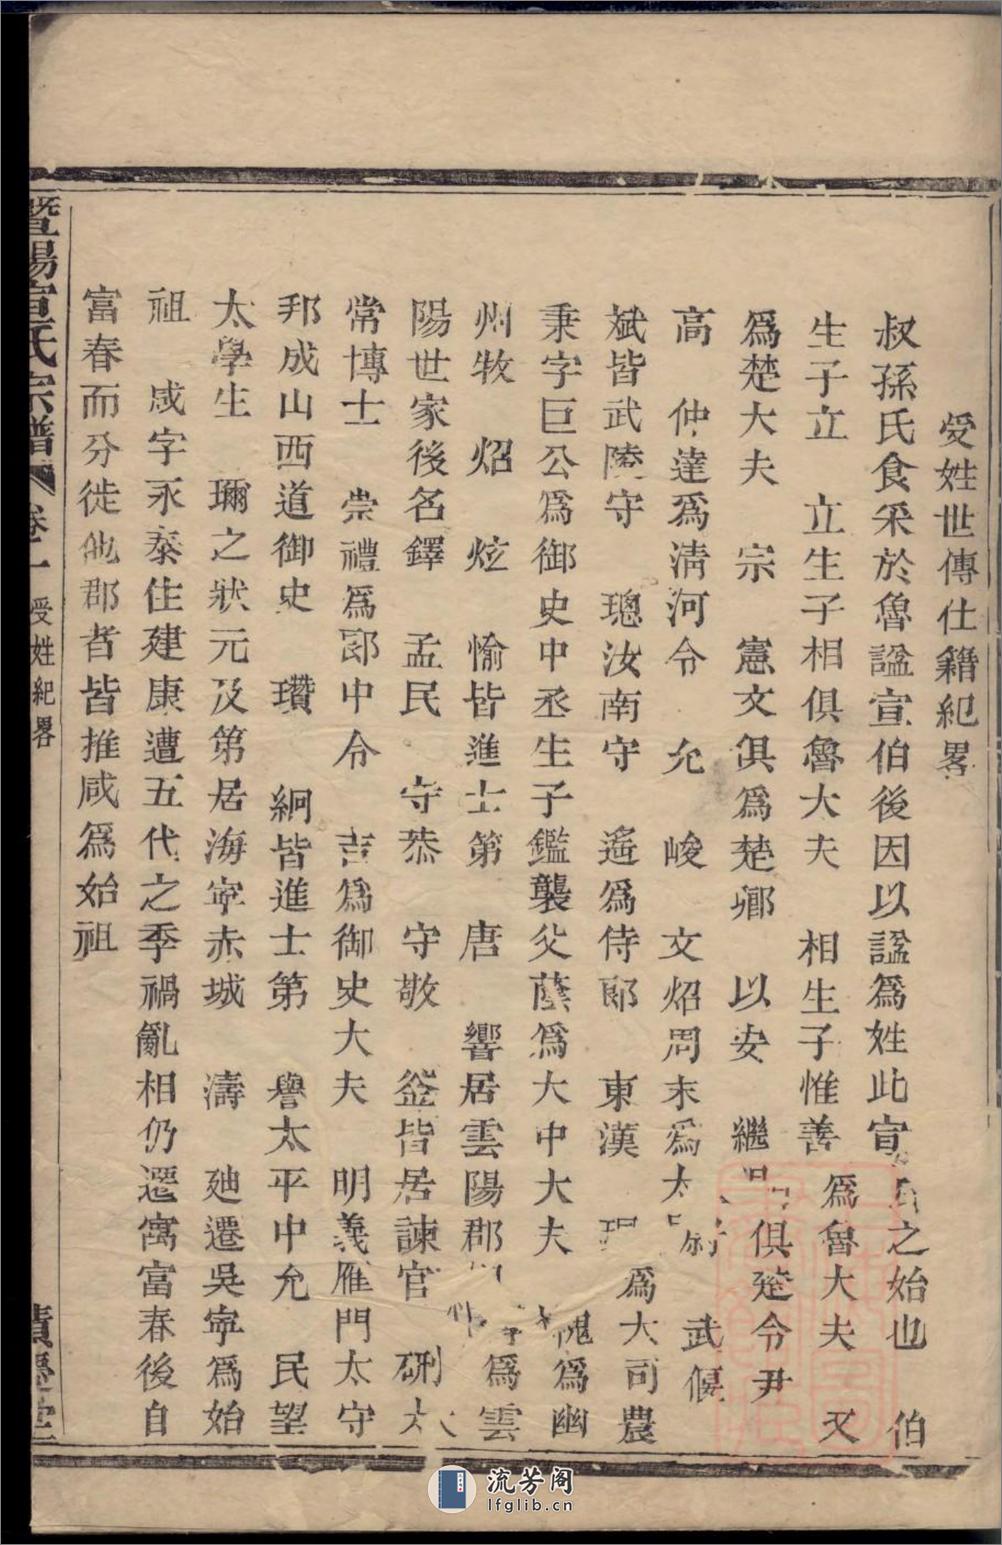 受姓世傳仕籍紀畧
叔孫氏食采於魯諡宣伯後因以諡爲姓此宣氏之始也 伯
生子立 立生子相俱魯大夫 相生子惟善 爲魯大夫 又
爲楚大夫 宗 憲文俱爲楚卿 以安 繼 俱楚令尹
高 仲達爲淸河令 允 峻 文炤周末爲太 武偃
斌皆武陵守 璁汝南守 遙爲侍郎 東漢 爲大司農
秉字巨公爲御史中丞生子鑑襲父蔭爲大中大夫 槐爲幽
州牧 炤 炫 愉皆進士第 唐 響居雲陽郡 爲雲
陽世家後名鐸 孟民 守恭 守敬 崟皆居諫官 硎太
常博士 崇禮爲郎中令 吉爲御史大夫 明義雁門太守
邦成山西道御史 瓚 絅皆進士第 譽太平中允 民望
太學生 璽之狀元及第居海寧赤城 濤 廸遷吳寧爲始
祖 咸字永泰住建康遭五代之季禍亂相仍遷寓富春後自
富春而分徙他郡者皆推咸爲始祖
暨陽宣氏宗譜 卷一 受姓紀畧
流芳阁
lfglib.cn